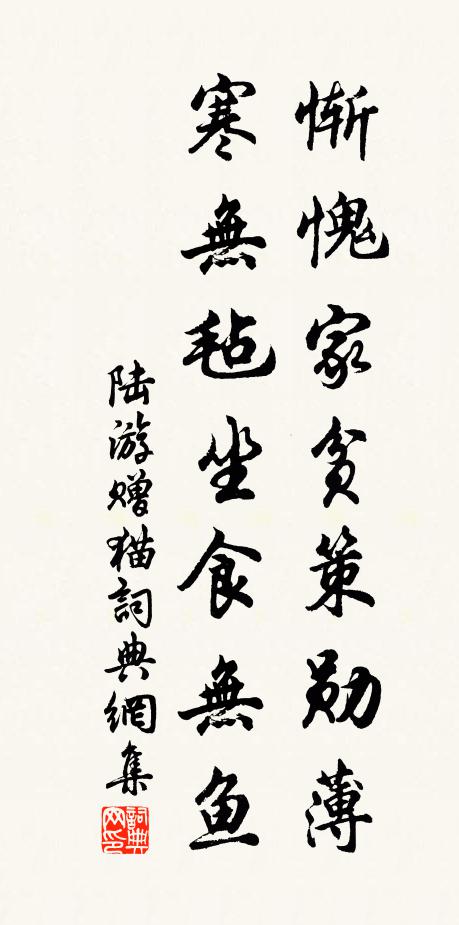 惭愧家贫策勋薄
寒無毡坐食無鱼
陆游赠猫詞典網集
詞典网印